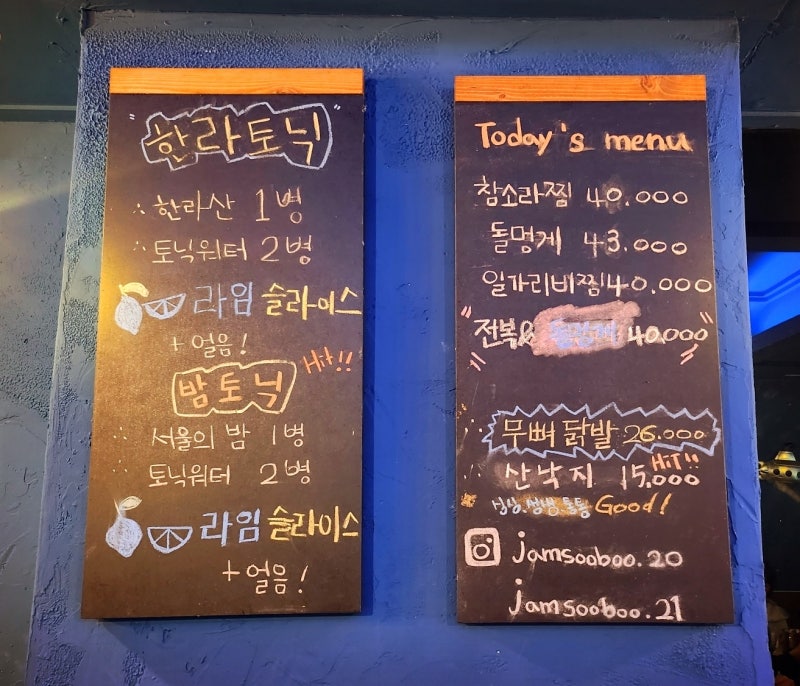 "한라토닉"
∴ 한라산 1병
∴ 토닉워터 2병
라임 슬라이스
+ 얼음!
Hit!!
밤토닉
서울의 밤 1병
토닉워터 2병
라임 슬라이스
+ 얼음!
Today's menu
참소라찜 40.000
돌멍게 43.000
일가리비찜 40.000
전복& 40.000
무뼈 닭발 26.000
HiT!!
산낙지 15,000
싱싱.생생.통통 Good!
jamsooboo.20
jamsooboo.21